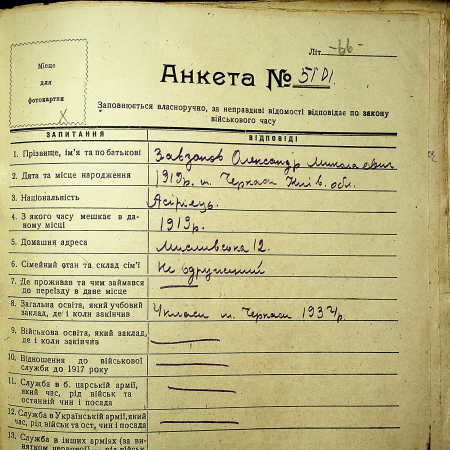 Літ. -66-
Місце
для
фотокартки
Анкета № 5101.
Заповнюється власноручно, за неправдиві відомості відповідає по закону
військового часу
ЗАПИТАННЯ ВІДПОВІДІ
1. Прізвище, ім'я та по батькові Олександр Миколаевич
2. Дата та місце народження 1919р. м. Черкаси Київ. обл.
3. Національність Асірієць.
4. З якого часу мешкає в да-
ному місці 1919р.
5. Домашня адреса Мисливська 12.
6. Сімейний стан та склад сім'ї Не одружений
7. Де проживав та чим займався
до переїзду в дане місце
8. Загальна освіта, який учбовий
заклад, де і коли закінчив 4 класи м. Черкаси 1934р.
9. Військова освіта, який заклад,
де і коли закінчив
10. Відношення до військової
служби до 1917 року
11. Служба в б. царській армії,
який час, рід військ та
останній чин і посада
12. Служба в Українській армії, який
час, рід військ та ост. чин і посада
13. Служба в інших арміях (за ви-
нятком червоної) рід військ